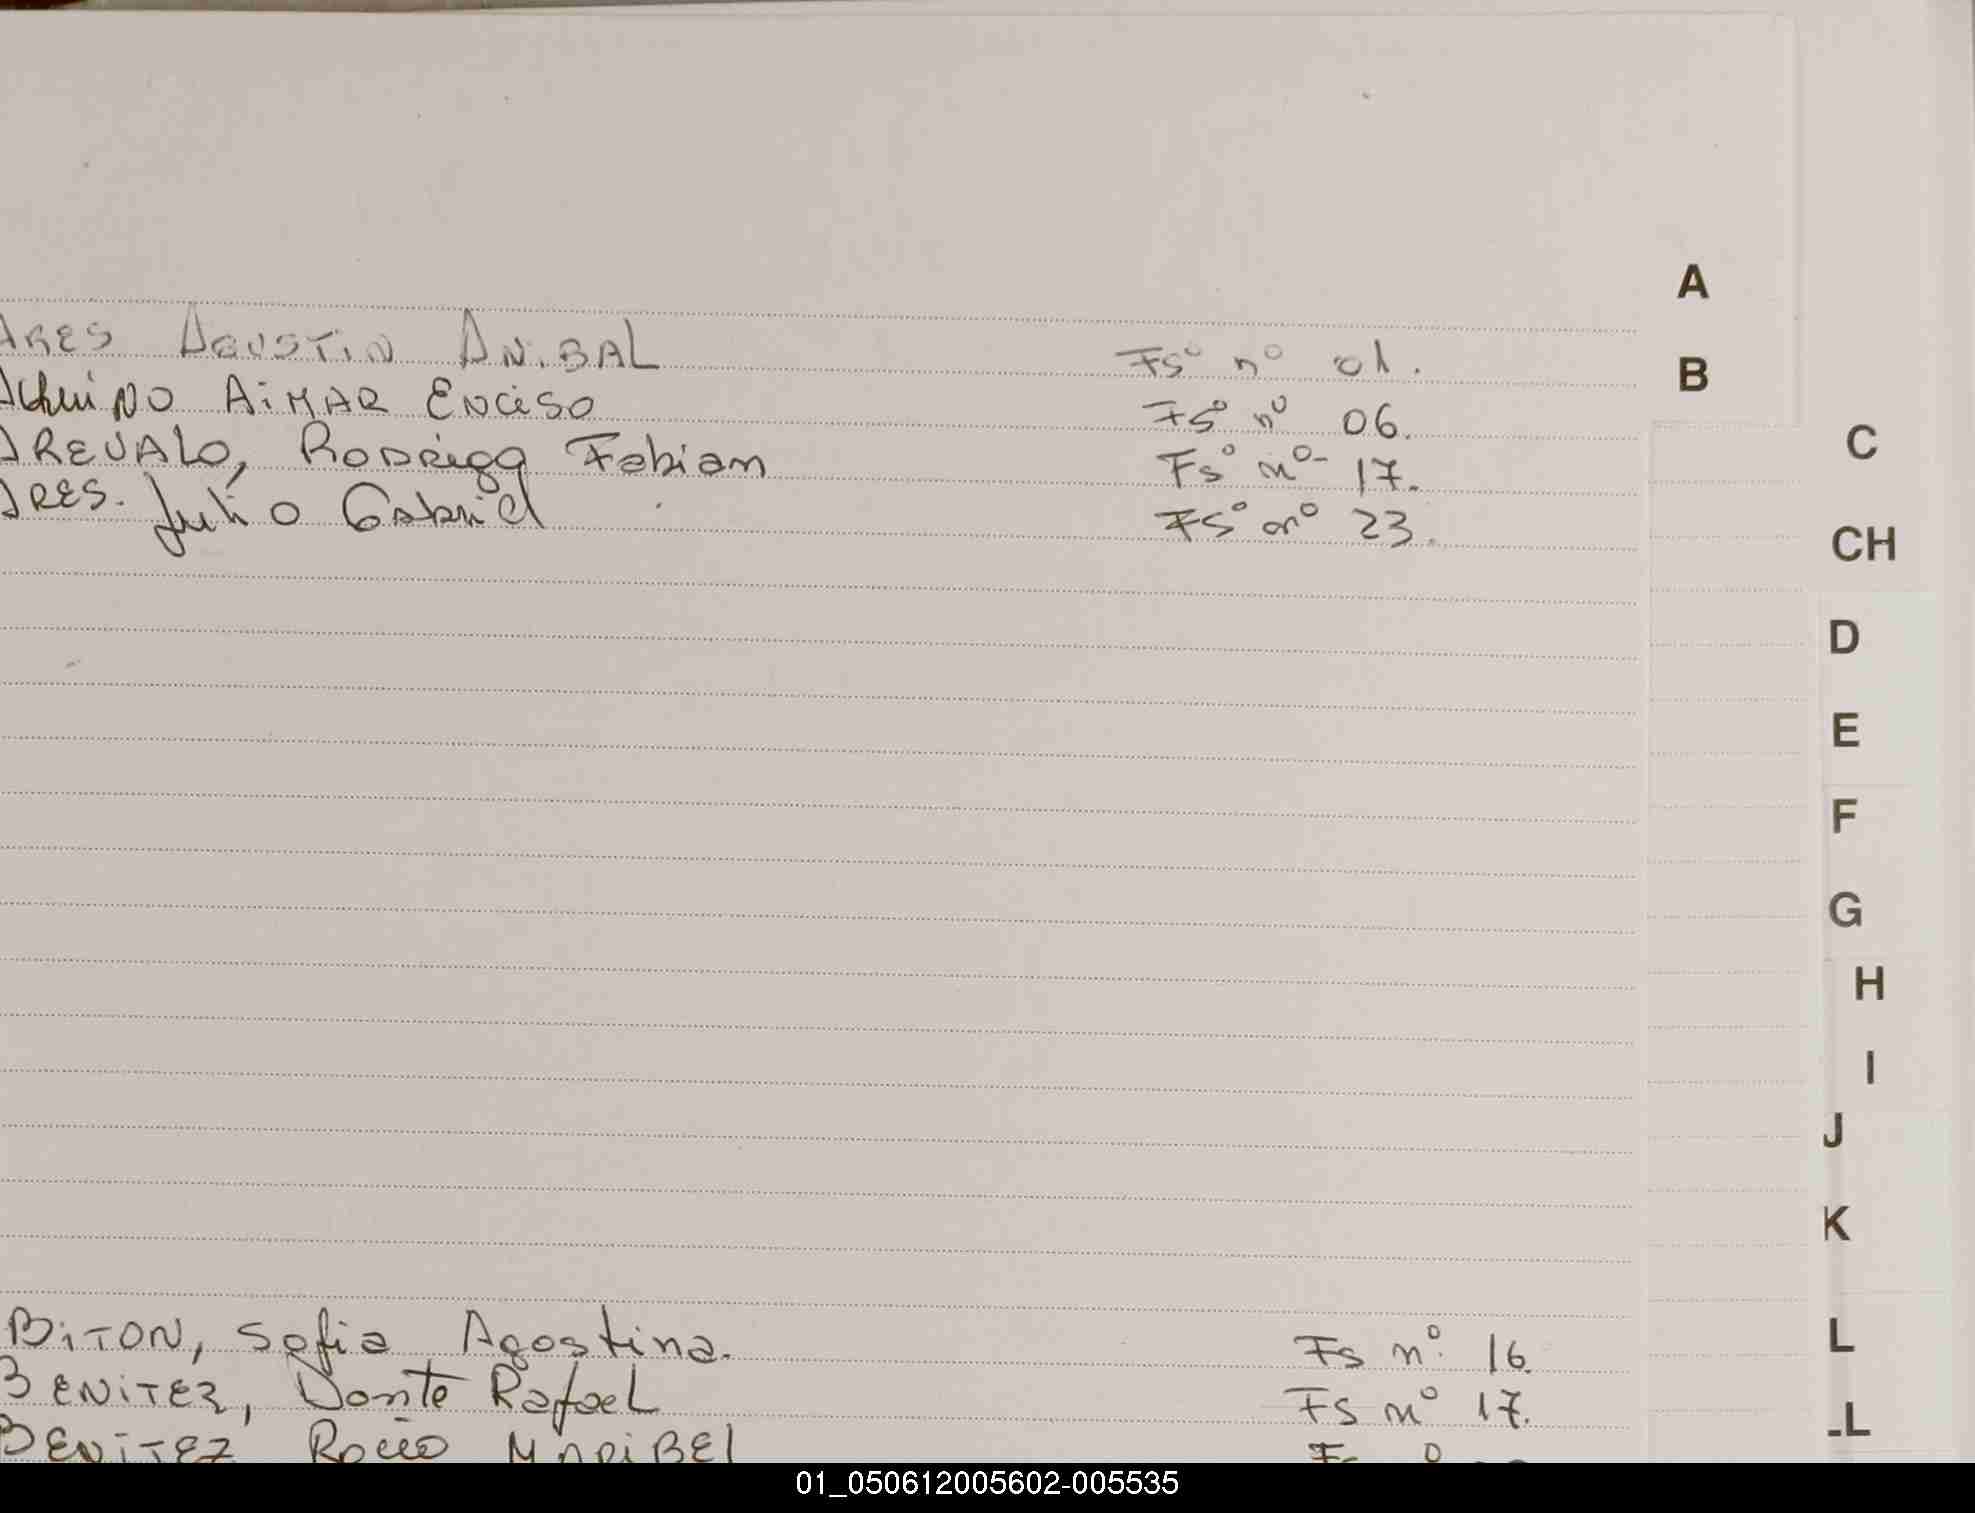 A
ARES AGUSTIN ANIBAL Fs° n° 01.
B
AQUINO AIMAR ENCISO Fs° n° 06.
AREVALO, RODRIGO Fabian Fs° n°- 17.
C
ARES. Julio Gabriel Fs° n° 23.
CH
D
E
F
G
H
I
J
K
BITON, Sofia Agostina. Fs n° 16.
L
BENITEZ, Dante Rafael Fs n° 17.
LL
BENITEZ Rocio MARIBEL Fs °
01_050612005602-005535